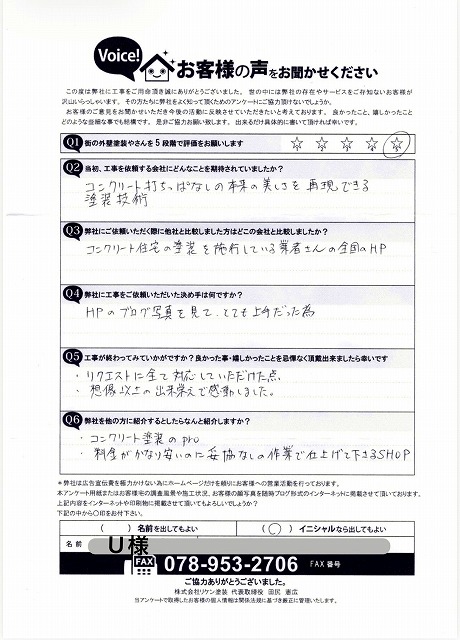 Voice!
お客様の声をお聞かせください
この度は弊社に工事をご用命頂き誠にありがとうございました。世の中には弊社の存在やサービスをご存知ないお客様が
沢山いらっしゃいます。その方たちに弊社をよく知って頂くためのアンケートにご協力頂けないでしょうか。
お客様のご意見をお聞かせいただき今後の活動に反映させていただきたいと考えております。良かったこと、嬉しかったこと
どのような些細な事でも結構です。是非ご協力お願い致します。出来るだけ具体的に書いて頂ければ幸いです。
Q1 街の外壁塗装やさんを5段階で評価をお願いします
Q2 当初、工事を依頼する会社にどんなことを期待されていましたか?
コンクリート打ちっぱなしの本来の美しさを再現できる
塗装技術
Q3 弊社にご依頼いただく際に他社と比較しました方はどこの会社と比較しましたか?
コンクリート住宅の塗装を施行している業者さんの全国のHP
Q4 弊社に工事をご依頼いただいた決め手は何ですか?
HPのブログ写真を見て、とても上手だった為
Q5 工事が終わってみていかがですか?良かった事・嬉しかったことを忌憚なく頂戴出来ましたら幸いです
・リクエストに全て対応していただけた点
・想像以上の出来栄えで感動しました。
Q6 弊社を他の方に紹介するとしたらなんと紹介しますか?
・コンクリート塗装のpro
・料金がかなり安いのに妥協なしの作業で仕上げて下さるSHOP
*弊社は広告宣伝費を極力かけない為にホームページだけを頼りにお客様への営業活動を行っております。
本アンケート用紙またはお客様宅の調査風景や施工状況、お客様の顔写真を随時ブログ形式のインターネットに掲載させて頂いております。
上記内容をインターネットや印刷物に掲載させて頂いてもよろしいでしょうか?
下記の中から〇印をお付下さい。
( ) 名前を出してもよい
(〇) イニシャルなら出してもよい
名前 U様
FAX 078-953-2706 FAX番号
ご協力ありがとうございました。
株式会社リケン塗装 代表取締役 田民 憲広
当アンケートで取得したお客様の個人情報は関係法規に基づき厳正に管理いたします。